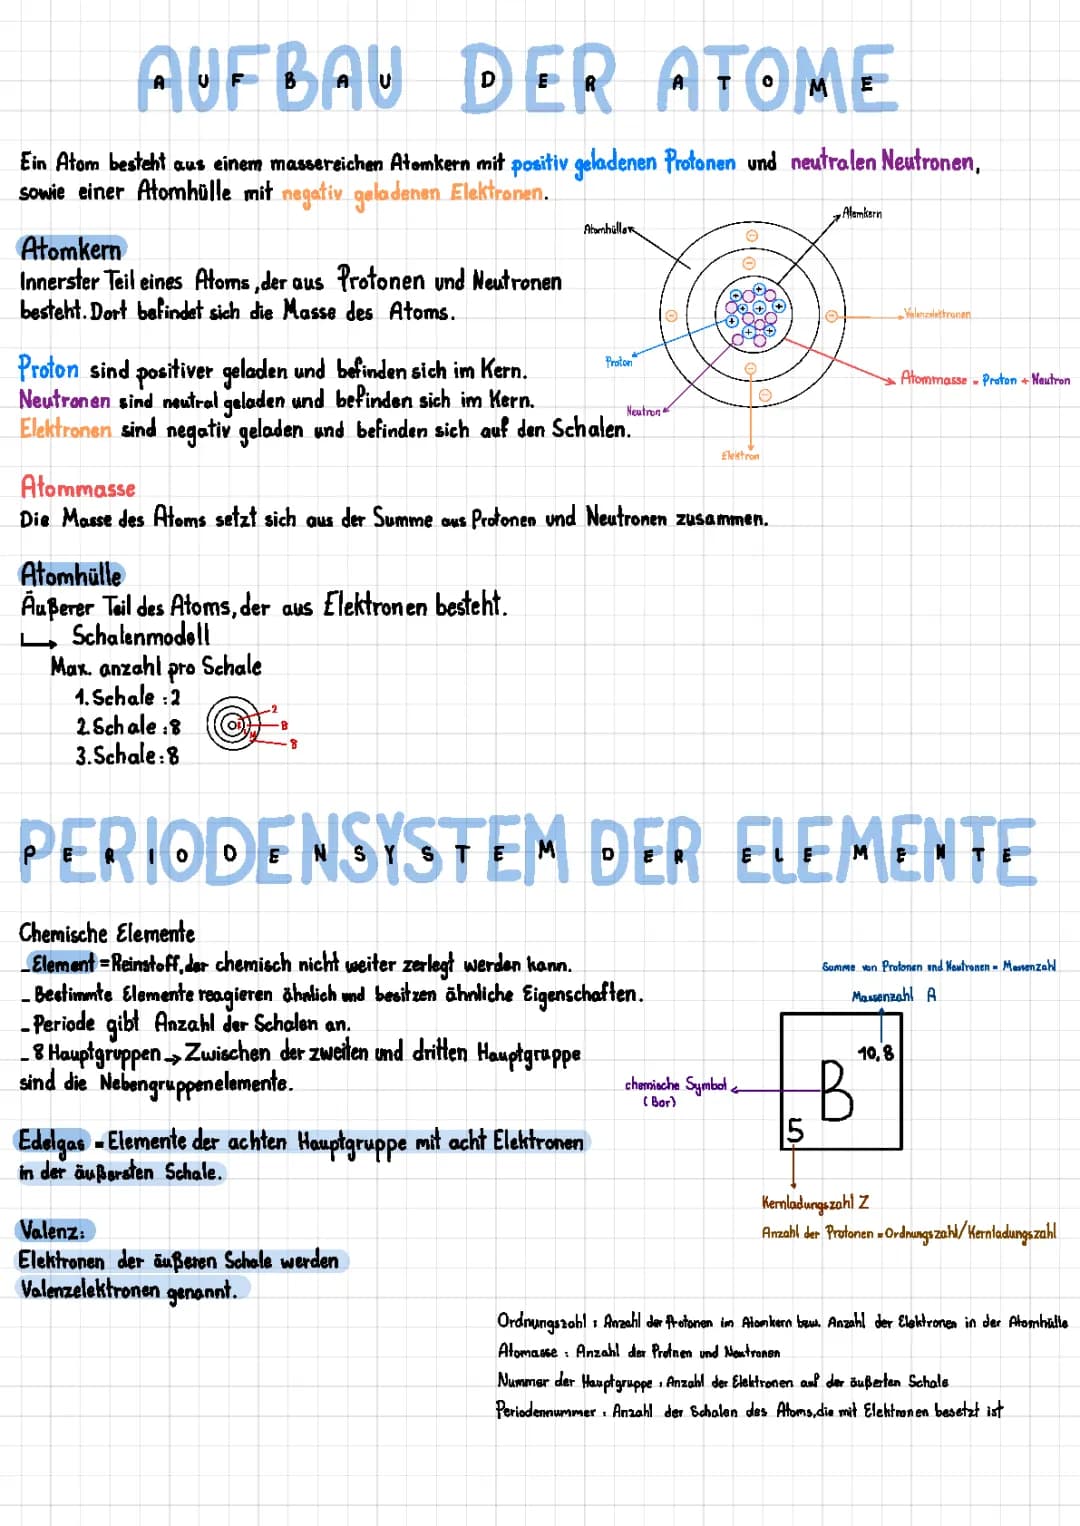 AUFBAU DER ATOME
Ein Atom besteht aus einem massereichen Atomkern mit positiv geladenen Protonen und neutralen Neutronen,
sowie einer Atomhülle mit negativ geladenen Elektronen.
Atomhülle
Atomkern
Atomkern
Innerster Teil eines Atoms, der aus Protonen und Neutronen
besteht. Dort befindet sich die Masse des Atoms.
Valenzelektronen
Proton
Atommasse = Proton + Neutron
Neutron
Elektron
Proton sind positiver geladen und befinden sich im Kern.
Neutronen sind neutral geladen und befinden sich im Kern.
Elektronen sind negativ geladen und befinden sich auf den Schalen.
Atommasse
Die Masse des Atoms setzt sich aus der Summe aus Protonen und Neutronen zusammen.
Atomhülle
Äußerer Teil des Atoms, der aus Elektronen besteht.
Schalenmodell
Max. anzahl pro Schale
1. Schale : 2
2. Schale : 8
3. Schale : 8
2
8
8
PERIODENSYSTEM DER ELEMENTE
Chemische Elemente
- Element = Reinstoff, der chemisch nicht weiter zerlegt werden kann.
- Bestimmte Elemente reagieren ähnlich und besitzen ähnliche Eigenschaften.
- Periode gibt Anzahl der Schalen an.
- 8 Hauptgruppen → Zwischen der zweiten und dritten Hauptgruppe
sind die Nebengruppenelemente.
Summe von Protonen und Neutronen = Massenzahl
Massenzahl A
10,8
B
5
chemische Symbol
(Bor)
Kernladungszahl Z
Anzahl der Protonen = Ordnungszahl/Kernladungszahl
Edelgas = Elemente der achten Hauptgruppe mit acht Elektronen
in der äußersten Schale.
Valenz:
Elektronen der äußeren Schale werden
Valenzelektronen genannt.
Ordnungszahl : Anzahl der Protonen im Atomkern bzw. Anzahl der Elektronen in der Atomhülle
Atomasse : Anzahl der Protnen und Neutronen
Nummer der Hauptgruppe : Anzahl der Elektronen auf der äußerten Schale
Periodennummer : Anzahl der Schalen des Atoms, die mit Elektronen besetzt ist